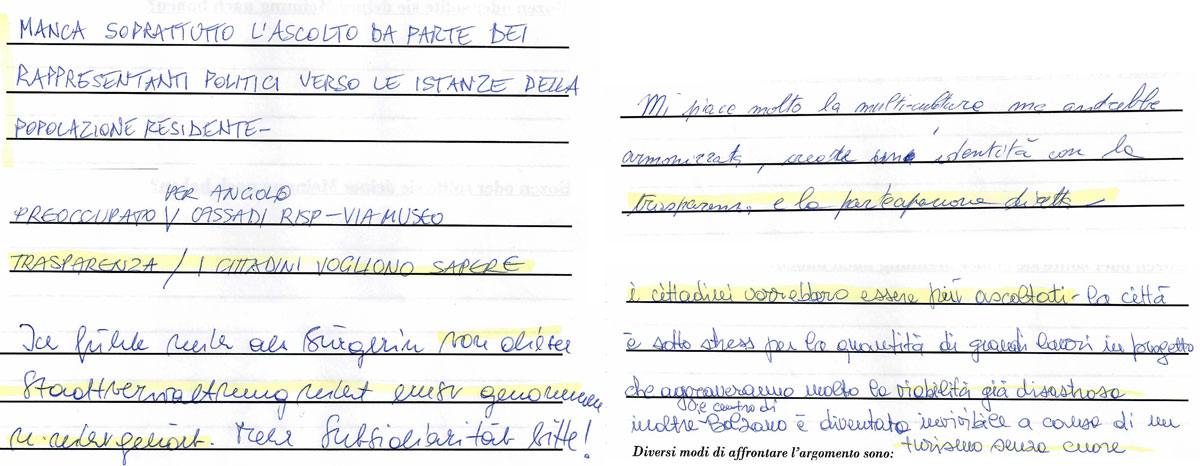 MANCA SOPRATTUTTO L'ASCOLTO DA PARTE DEI
RAPPRESENTANTI POLITICI VERSO LE ISTANZE DELLA
POPOLAZIONE RESIDENTE-
PER ANGOLO
PREOCCUPATO V CASSA DI RISP-VIA MUSEO
TRASPARENZA / I CITTADINI VOGLIONO SAPERE
Ich fühle mich als Bürgerin von dieser
Stadtverwaltung nicht ernst genommen
u. nicht gehört. Mehr Subsidiarität bitte!
Mi piace molto la multiculture ma andrebbe
armonizzata, identità con la
trasparenza, e la partecipazione diretta
i cittadini vorrebbero essere più ascoltati - la città
è sotto stress per la quantità di grandi lavori in progetto
che aggraveranno molto la viabilità già disastrosa
centro di
inoltre Bolzano è diventato invivibile a causa di un
turismo senza cuore
Diversi modi di affrontare l'argomento sono: